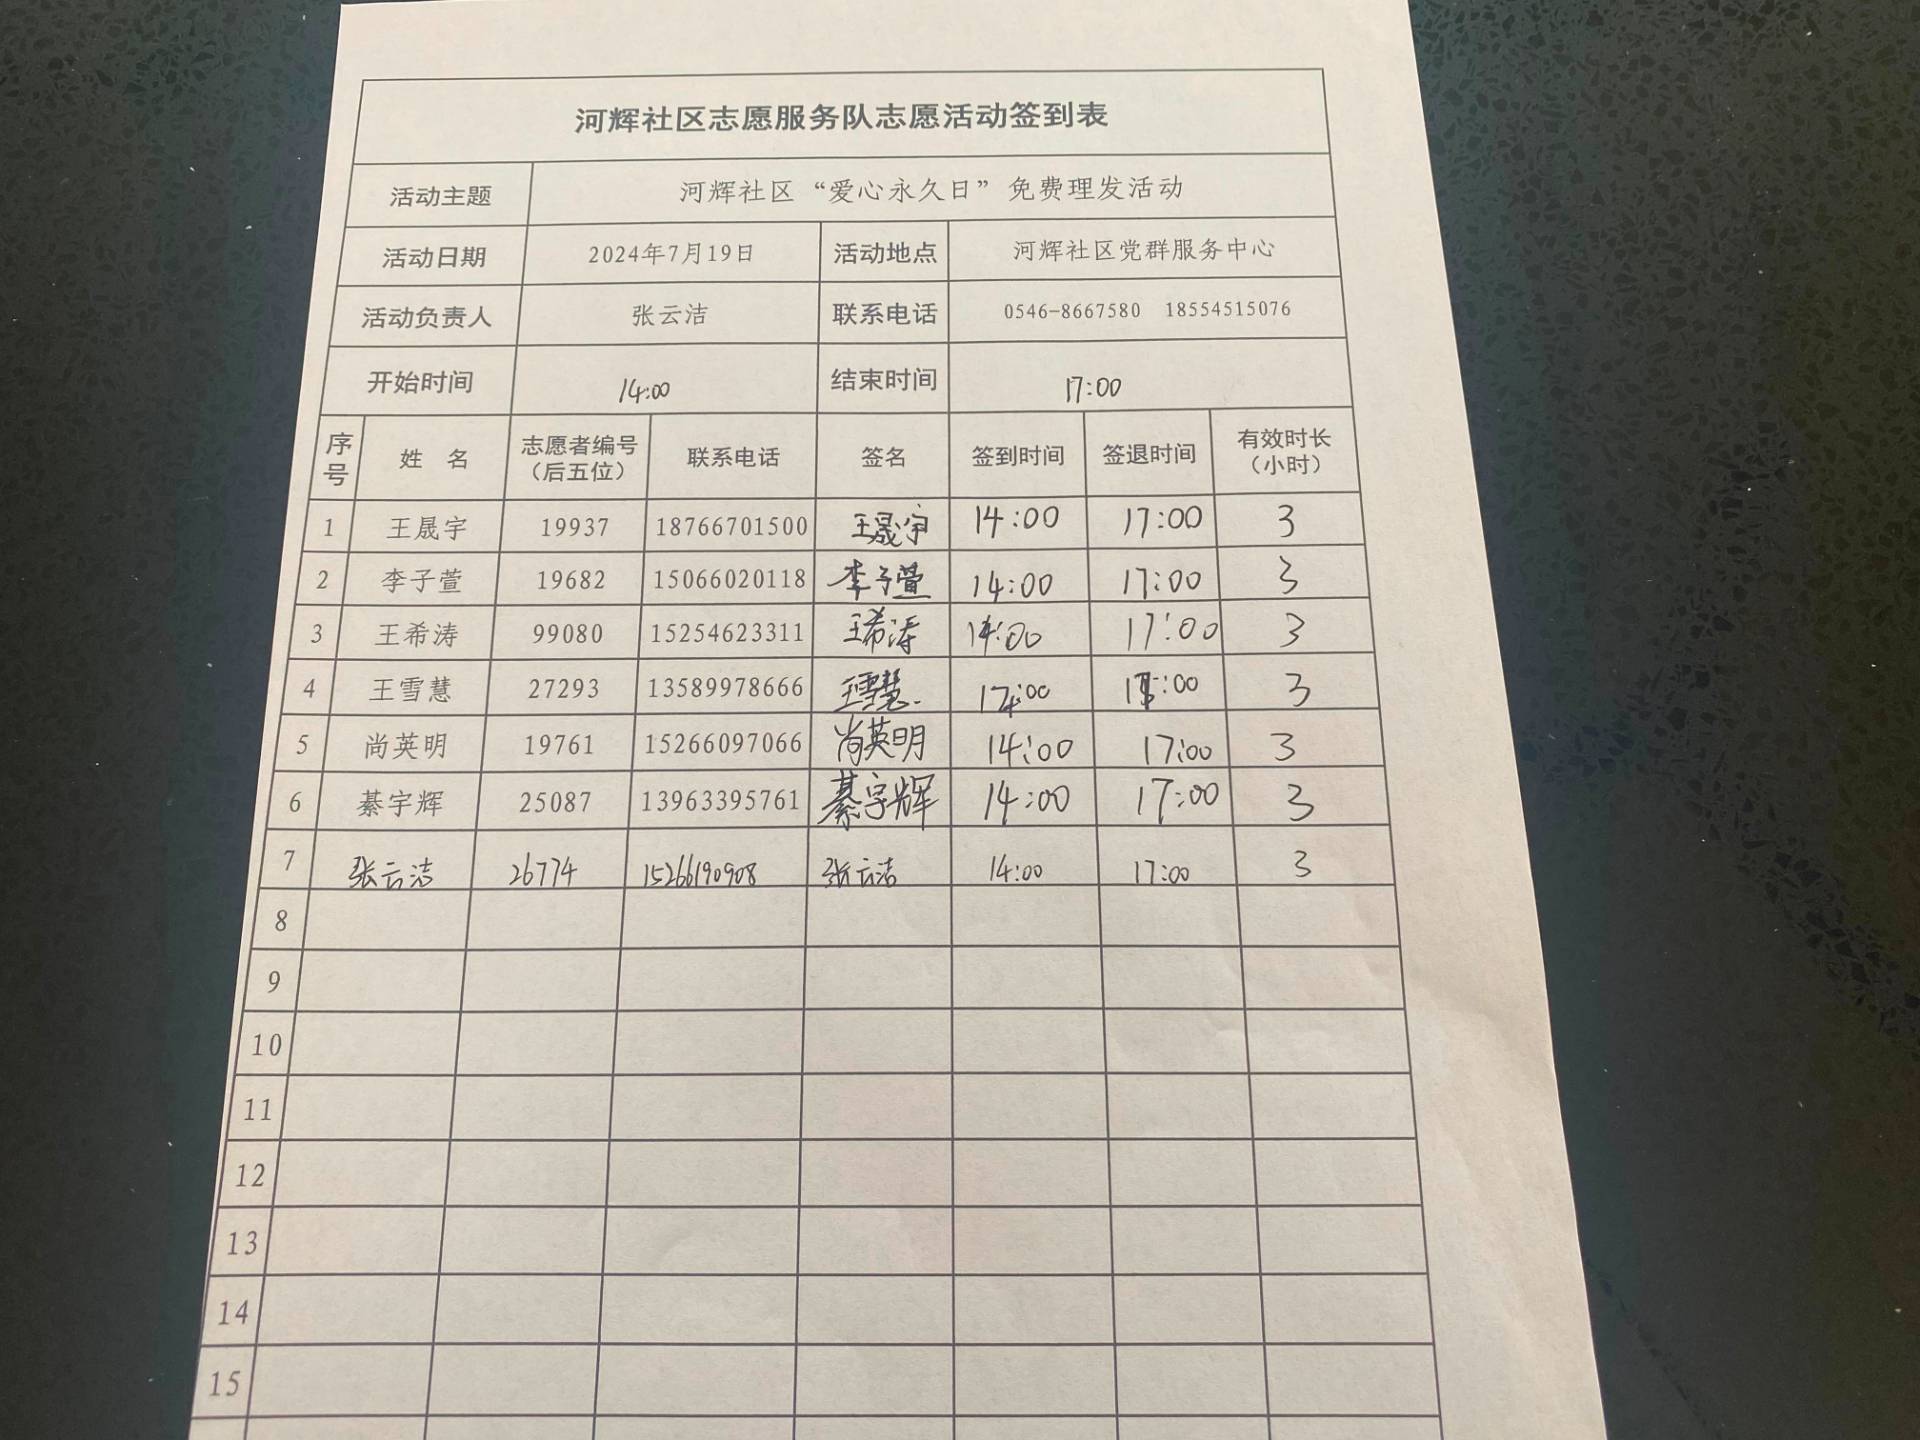 河辉社区志愿服务队志愿活动签到表
活动主题 河辉社区“爱心永久日”免费理发活动
活动日期 2024年7月19日 活动地点 河辉社区党群服务中心
活动负责人 张云洁 联系电话 0546-8667580 18554515076
开始时间 14:00 结束时间 17:00
序号 姓 名 志愿者编号（后五位） 联系电话 签名 签到时间 签退时间 有效时长（小时）
1 王晟宇 19937 18766701500 王晟宇 14:00 17:00 3
2 李子萱 19682 15066020118 李子萱 14:00 17:00 3
3 王希涛 99080 15254623311 王希涛 14:00 17:00 3
4 王雪慧 27293 13589978666 王雪慧 :00 :00 3
5 尚英明 19761 15266097066 尚英明 14:00 17:00 3
6 綦宇辉 25087 13963395761 綦宇辉 14:00 17:00 3
7 张云洁 26774 15266190908 张云洁 14:00 17:00 3
8
9
10
11
12
13
14
15